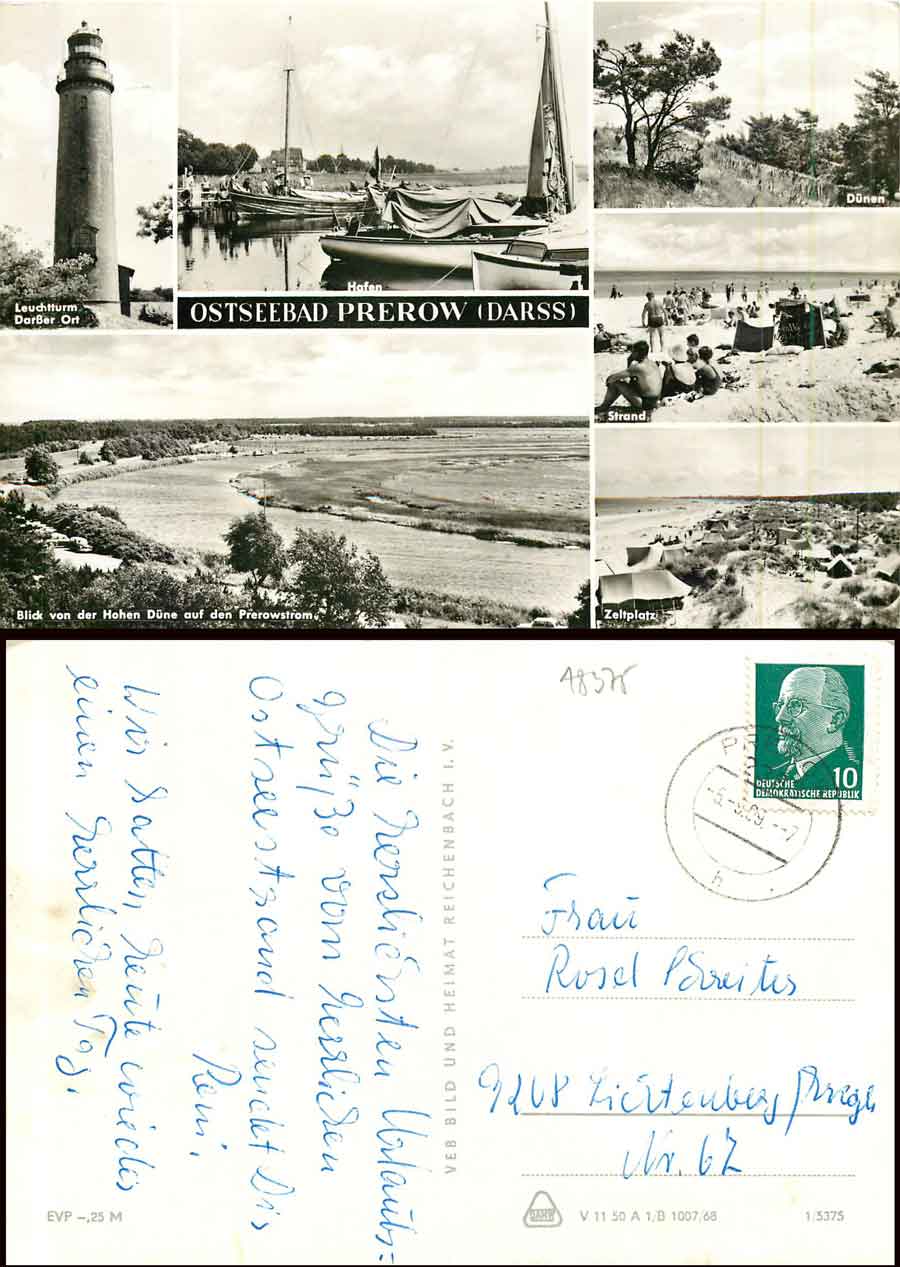 Leuchtturm
Darßer Ort
Hafen
OSTSEEBAD PREROW (DARSS)
Dünen
Strand
Blick von der Hohen Düne auf den Prerowstrom
Zeltplatz
18375
DEUTSCHE
DEMOKRATISCHE REPUBLIK 10
-5.-9.69.--7
h
Die herzlichsten Urlaubs=
grüße vom herrlichen
Ostseestrand sendet Dir
Reni.
Wir hatten heute wieder
einen herrlichen Tag.
VEB BILD UND HEIMAT REICHENBACH I. V.
Frau
Rosel
9208 Lichtenberg
Nr. 67
EVP –,25 M
V 11 50 A 1/B 1007/68
1/5375